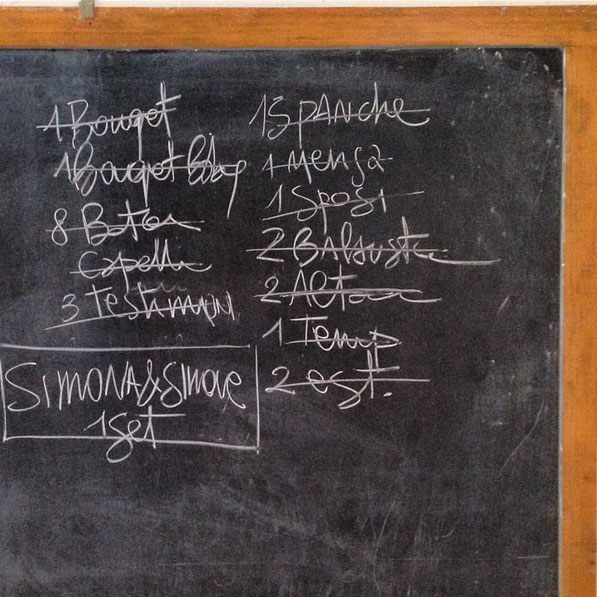 1 Bouqet
1 Bouqet
8 Boton
Capelli
3 Testimon
SIMONA&SIMONE
1 set
15 PANche
1 mensa
1 Sposi
2 Balaustr
2 Altar
1 Temp
2 est.